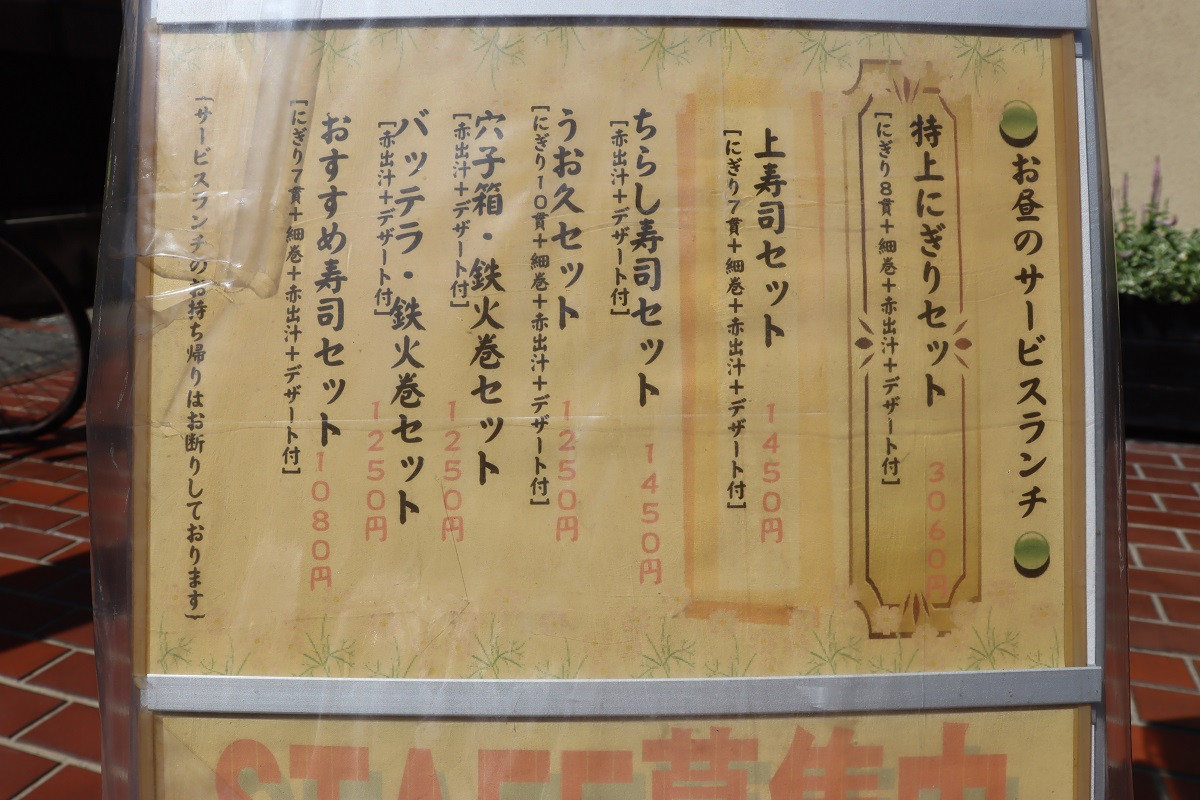 お昼のサービスランチ
特上にぎりセット 3060円
[にぎり8貫+細巻+赤出汁+デザート付]
上寿司セット 1450円
[にぎり7貫+細巻+赤出汁+デザート付]
ちらし寿司セット 1450円
[赤出汁+デザート付]
うお久セット 1250円
[にぎり10貫+細巻+赤出汁+デザート付]
穴子箱・鉄火巻セット 1250円
[赤出汁+デザート付]
バッテラ・鉄火巻セット 1250円
[赤出汁+デザート付]
おすすめ寿司セット 1080円
[にぎり7貫+細巻+赤出汁+デザート付]
[サービスランチのお持ち帰りはお断りしております]
STAFF募集中